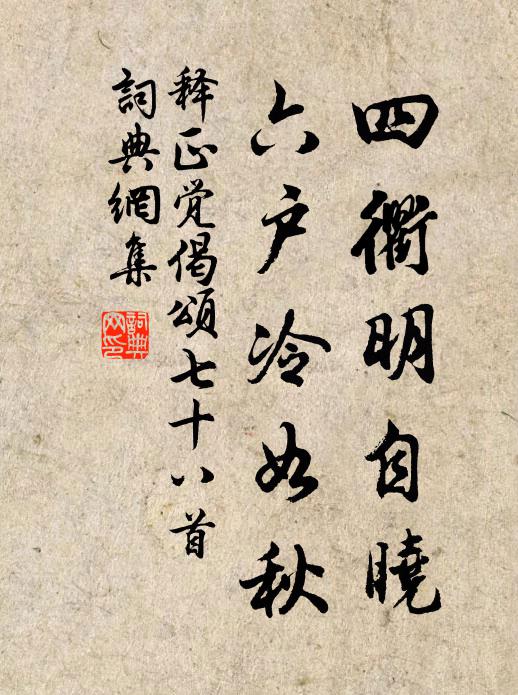 四衢明自曉
六户冷如秋
释正觉偈頌七十八首
詞典網集
詞典網印